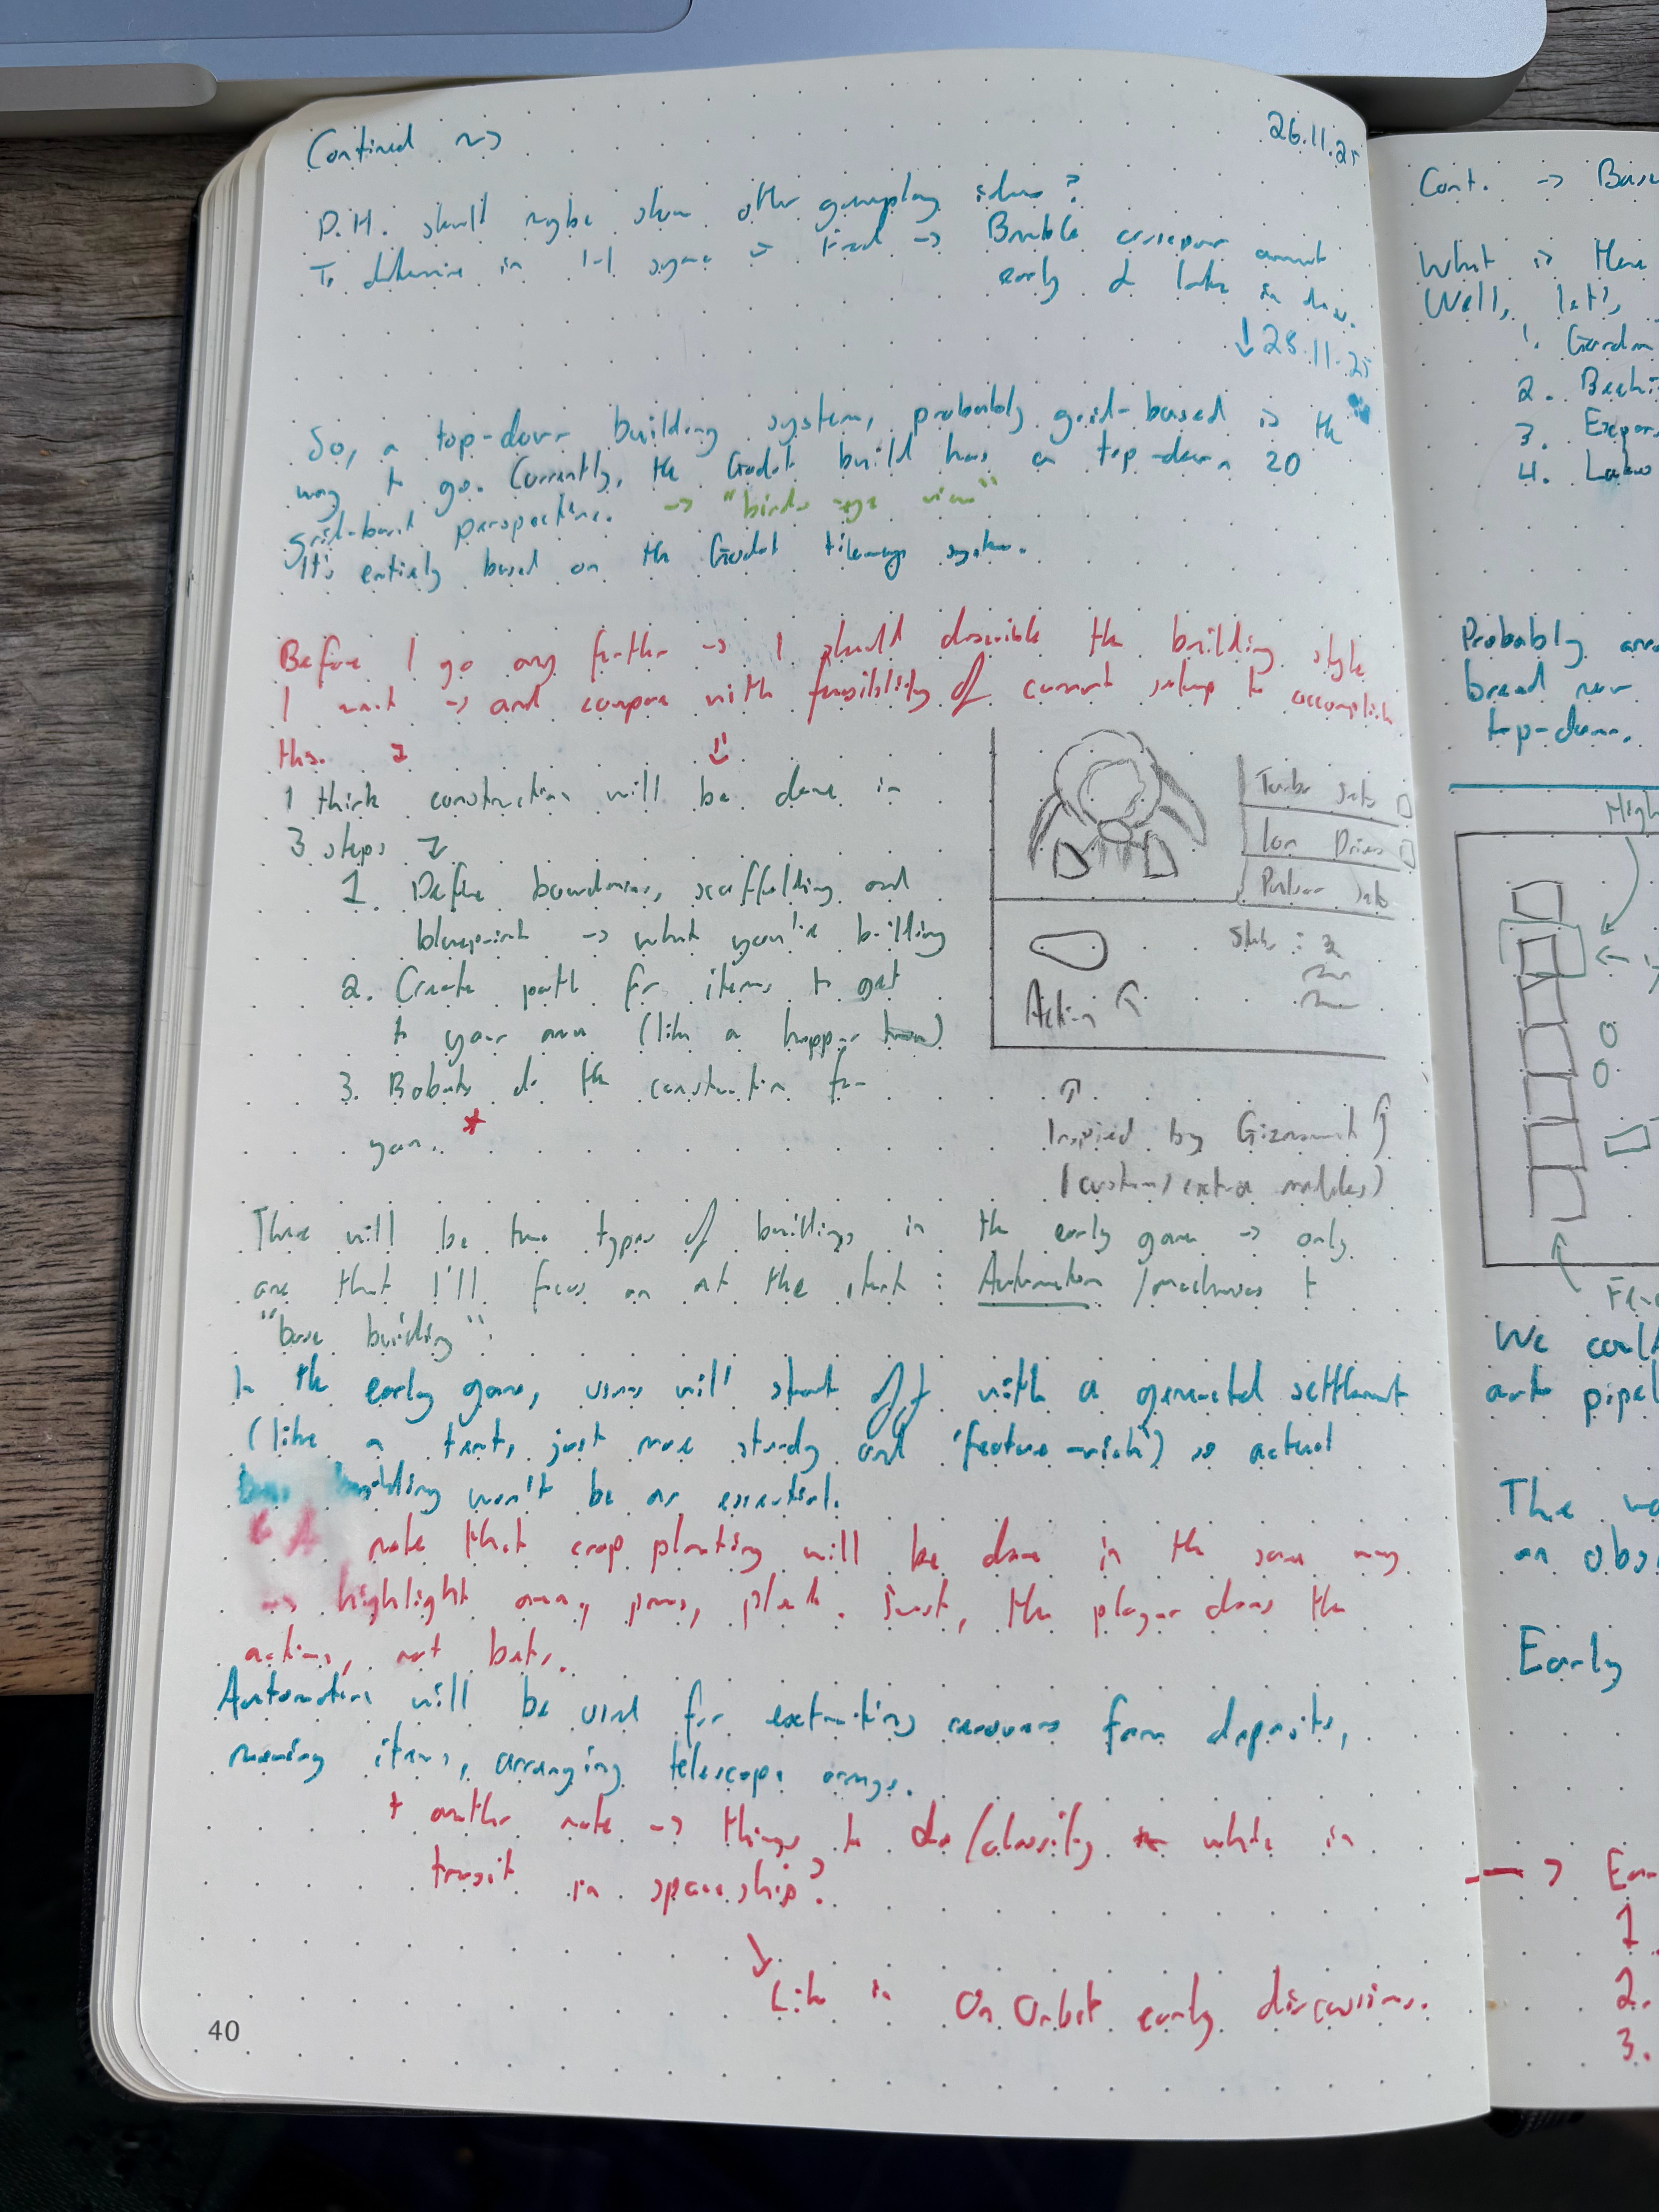 Contined ~>
26.11.25
P.H. should maybe show other gameplay ideas?
To determine in 1-1 sync
early & later in dev.
↓ 28.11.25
So, a top-down building system, probably grid-based is the
way to go. Currently, the Godot build has a top-down 2D
grid-based perspective. -> "birds eye view"
It's entirely based on the Godot tilemap system.
Before I go any further -> I should describe the building style
I want -> and compare with feasibility of current setup to accomplish
this.
I think construction will be done in
3 steps
1. Define boundaries, scaffolding and
blueprint -> what you're building
2. Create path for items to get
to your area (like a hopper)
3. Robots do the construction for
you. *
Turbo Jets
Ion Drives
Pulsar Jets
Stats :
Action
Inspired by
(custom/extra modules)
There will be two types of buildings in the early game -> only
one that I'll focus on at the start : Automation /machines +
"base building".
In the early game, users will start off with a generated settlement
(like a tent, just more sturdy and 'feature-rich') so actual
building won't be as essential.
note that crop planting will be done in the same way
-> highlight area, press, plant. Just, the player does the
actions, not bots.
Automation will be used for extracting resources from deposits,
moving items, arranging telescope arrays.
+ another note -> things to do/classify while in
transit in spaceship?
Like in On Orbit early discussions.
40
Cont. ->
What is
Well, let's
1.
2.
3.
4.
Probably
top-down.
We could
art pipel
The
an obs
Early
->
1
2.
3.